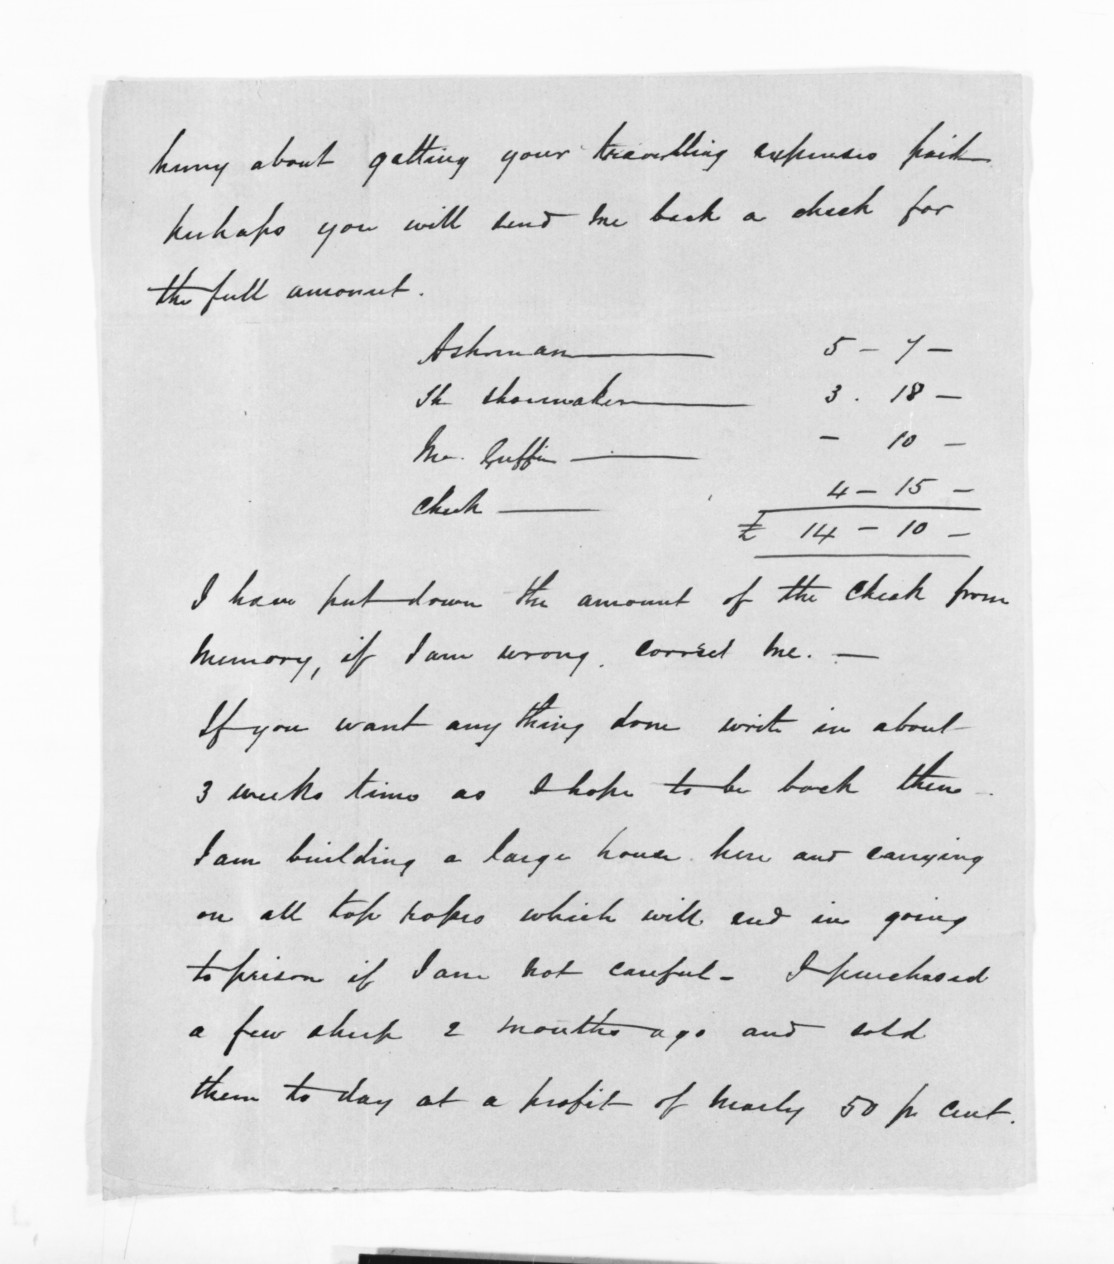 hurry about getting your travelling expenses paid
perhaps you will send me back a check for
the full amount.
Ashorman 5 - 7 -
The Shoemaker 3 . 18 -
Mr. Griffin - 10 -
Check 4 - 15 -
£ 14 - 10 -
I have put down the amount of the Check from
Memory, if I am wrong. correct me. —
If you want anything done write in about
3 weeks time as I hope to be back then -
I am building a large house here and carrying
on all top ropes which will end in going
to prison if I am not careful - I purchased
a few sheep 2 months ago and sold
them to day at a profit of nearly 50 pr cent.